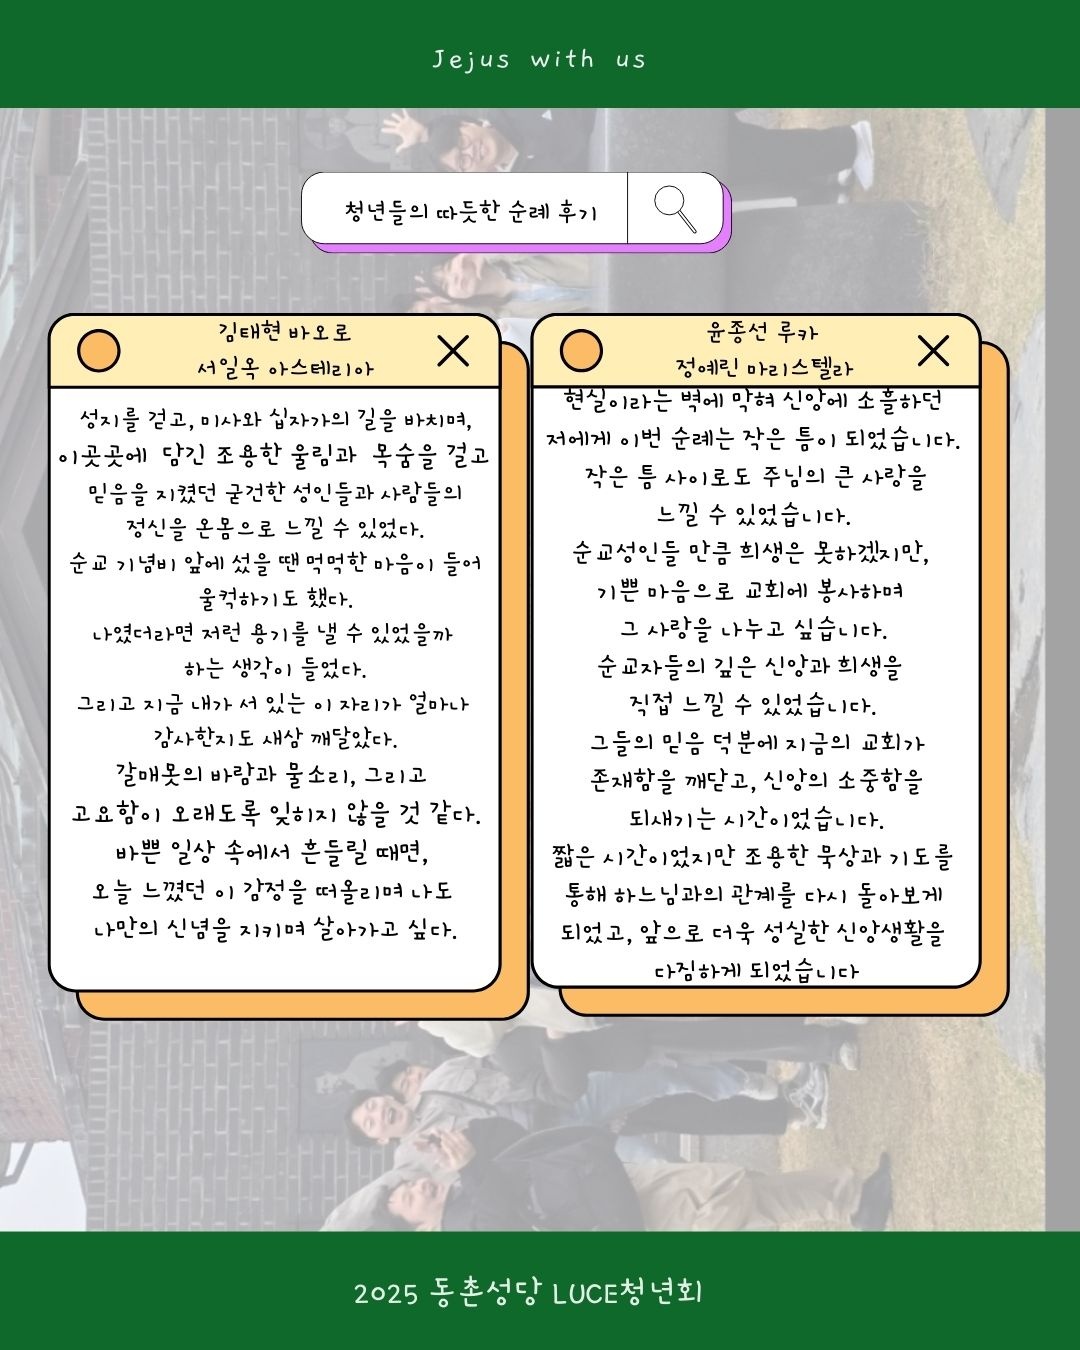 Jejus with us
청년들의 따듯한 순례 후기
김태현 바오로
서일옥 아스테리아
성지를 걷고, 미사와 십자가의 길을 바치며,
이곳곳에 담긴 조용한 울림과 목숨을 걸고
믿음을 지켰던 굳건한 성인들과 사람들의
정신을 온몸으로 느낄 수 있었다.
순교 기념비 앞에 섰을 땐 먹먹한 마음이 들어
울컥하기도 했다.
나였더라면 저런 용기를 낼 수 있었을까
하는 생각이 들었다.
그리고 지금 내가 서 있는 이 자리가 얼마나
감사한지도 새삼 깨달았다.
갈매못의 바람과 물소리, 그리고
고요함이 오래도록 잊히지 않을 것 같다.
바쁜 일상 속에서 흔들릴 때면,
오늘 느꼈던 이 감정을 떠올리며 나도
나만의 신념을 지키며 살아가고 싶다.
윤종선 루카
정예린 마리스텔라
현실이라는 벽에 막혀 신앙에 소흘하던
저에게 이번 순례는 작은 틈이 되었습니다.
작은 틈 사이로도 주님의 큰 사랑을
느낄 수 있었습니다.
순교성인들 만큼 희생은 못하겠지만,
기쁜 마음으로 교회에 봉사하며
그 사랑을 나누고 싶습니다.
순교자들의 깊은 신앙과 희생을
직접 느낄 수 있었습니다.
그들의 믿음 덕분에 지금의 교회가
존재함을 깨닫고, 신앙의 소중함을
되새기는 시간이었습니다.
짧은 시간이었지만 조용한 묵상과 기도를
통해 하느님과의 관계를 다시 돌아보게
되었고, 앞으로 더욱 성실한 신앙생활을
다짐하게 되었습니다
2025 동촌성당 LUCE청년회